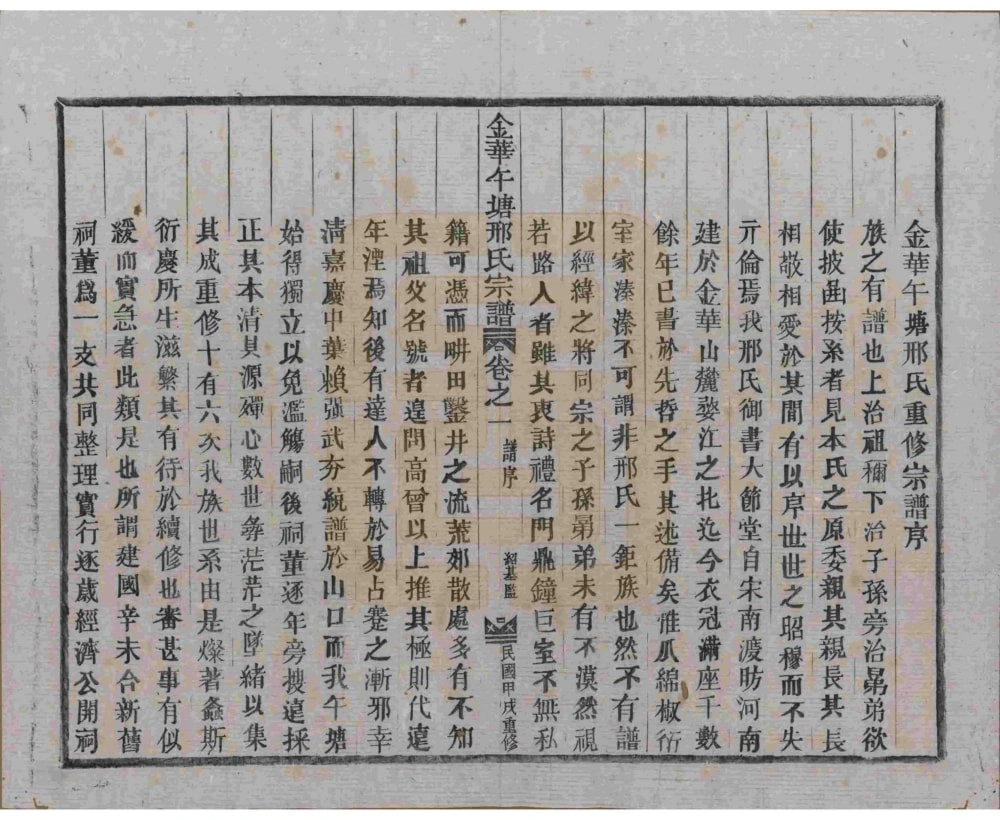 金華午塘邢氏重修宗譜序
族之有譜也上治祖禰下治子孫旁治昴弟欲
使披函按系者見本氏之原委親其親長其長
相敬相愛於其間有以序世世之昭穆而不失
亓倫焉我邢氏御書大節堂自宋南渡昉河南
建於金華山麓婺江之北迄今衣冠滿座千數
餘年已書於先哲之手其述備矣惟瓜綿椒衍
室家溱溱不可謂非邢氏一鉅族也然不有譜
以經緯之將同宗之子孫昴弟未有不漠然視
若路人者雖其衷詩禮名門鼎鐘巨室不無私
金華午塘邢氏宗譜 卷之一 譜序 紹基監 二 民國甲戌重修
籍可憑而畊田鑿井之流荒郊散處多有不知
其祖父名號者遑問高曾以上推其極則代遠
年湮焉知後有達人不轉於易占蹇之漸邪幸
清嘉慶中葉賴强武夯統譜於山口而我午塘
始得獨立以免濫觴嗣後祠董逐年旁搜遠採
正其本清其源殫心數世彝茫茫之墜緒以集
其成重修十有六次我族世系由是燦著螽斯
衍慶所生滋繁其有待於續修也審甚事有似
緩而實急者此類是也所謂建國辛未合新舊
祠董爲一支共同整理實行逐歲經濟公開祠